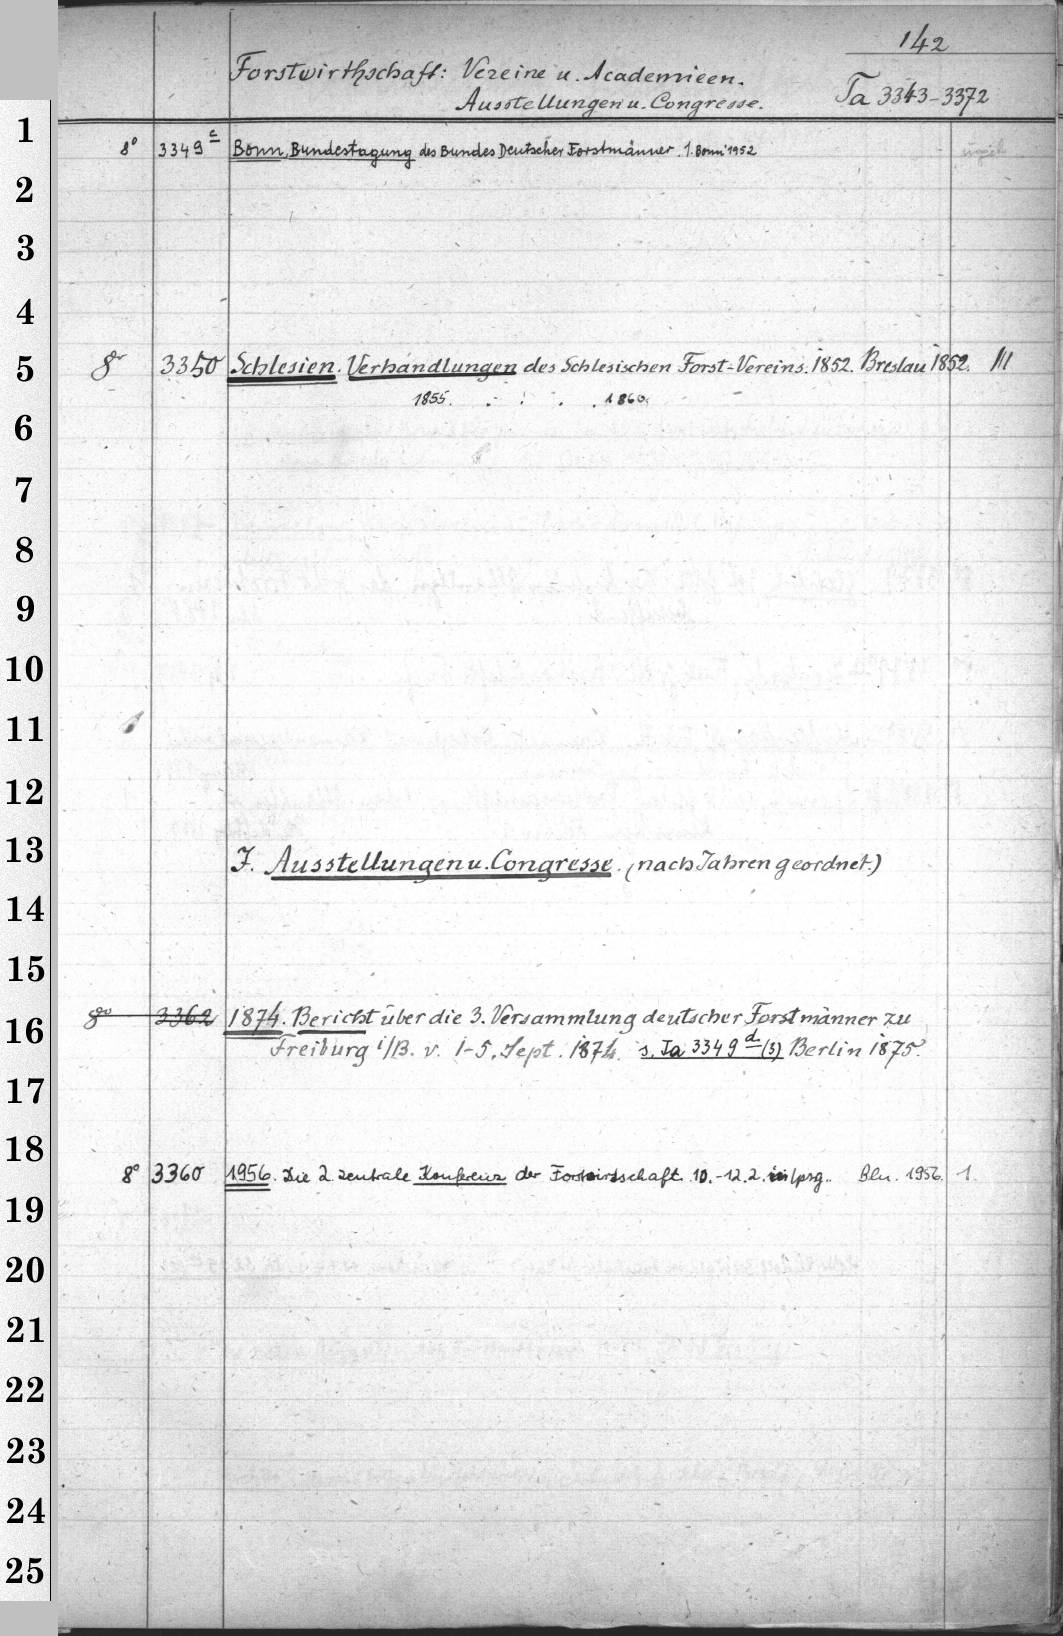 142
Forstwirthschaft: Vereine u. Academieen.
Ausstellungen u. Congresse.
Ta 3343-3372
1
8° 3349c Bonn, Bundestagung des Bundes Deutscher Forstmänner. 1. Bonn 1952
2
3
4
5
8° 3350 Schlesien. Verhandlungen des Schlesischen Forst-Vereins. 1852. Breslau 1852. III
1855. . : . . 1860.
6
7
8
9
10
11
12
13
J. Ausstellungen u. Congresse. (nach Jahren geordnet.)
14
15
16
8° 3362 1874. Bericht über die 3. Versammlung deutscher Forstmänner zu
Freiburg i/B. v. 1-5. Sept. 1874. s. Ta 3349 d (3) Berlin 1875.
17
18
8° 3360 1956. Die 2. zentrale Konferenz der Forstwirtschaft. 10.-12.2. in Lpzg. Bln. 1956. 1.
19
20
21
22
23
24
25